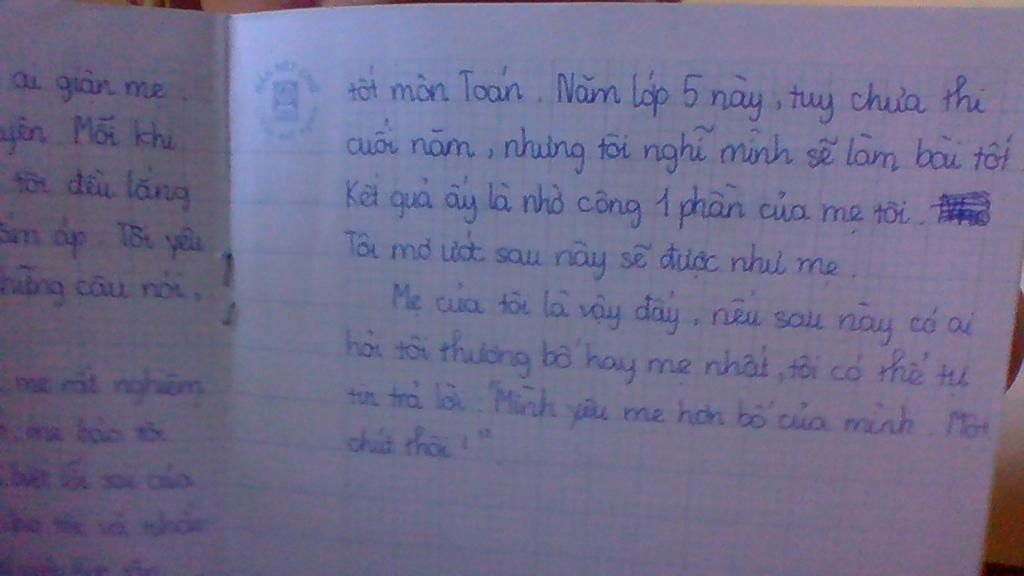 ai giận mẹ.
Mỗi khi
tôi đều lắng
ấm áp. Tôi yêu
những câu nói,
mẹ rất nghiêm
mẹ bảo tôi
biết lỗi sai của
tốt môn Toán. Năm lớp 5 này, tuy chưa thi
cuối năm, nhưng tôi nghĩ mình sẽ làm bài tốt.
Kết quả ấy là nhờ công 1 phần của mẹ tôi.
Tôi mơ ước sau này sẽ được như mẹ.
Mẹ của tôi là vậy đấy, nếu sau này có ai
hỏi tôi thương bố hay mẹ nhất, tôi có thể tự
tin trả lời: "Mình yêu mẹ hơn bố của mình. Một
chút thôi!"